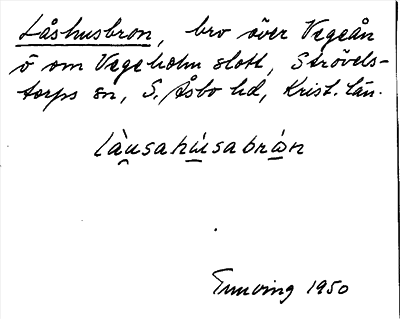 Låshusbron, bro över Vegeån
ö om Vegeholm slott, Strövels-
torps sn, S. Åsbo hd, Krist. län.
làusahúsabrån
1950